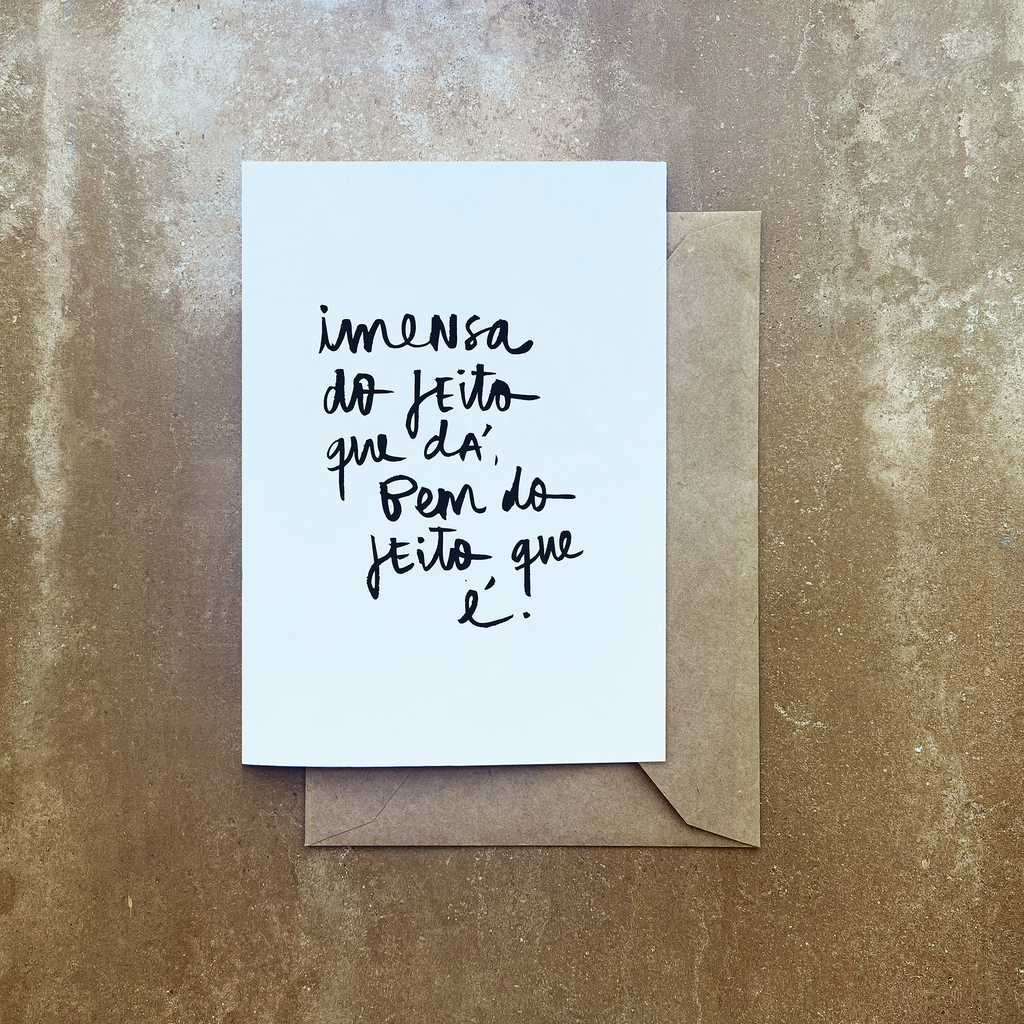 imensa
do jeito
que dá,
bem do
jeito que
é.